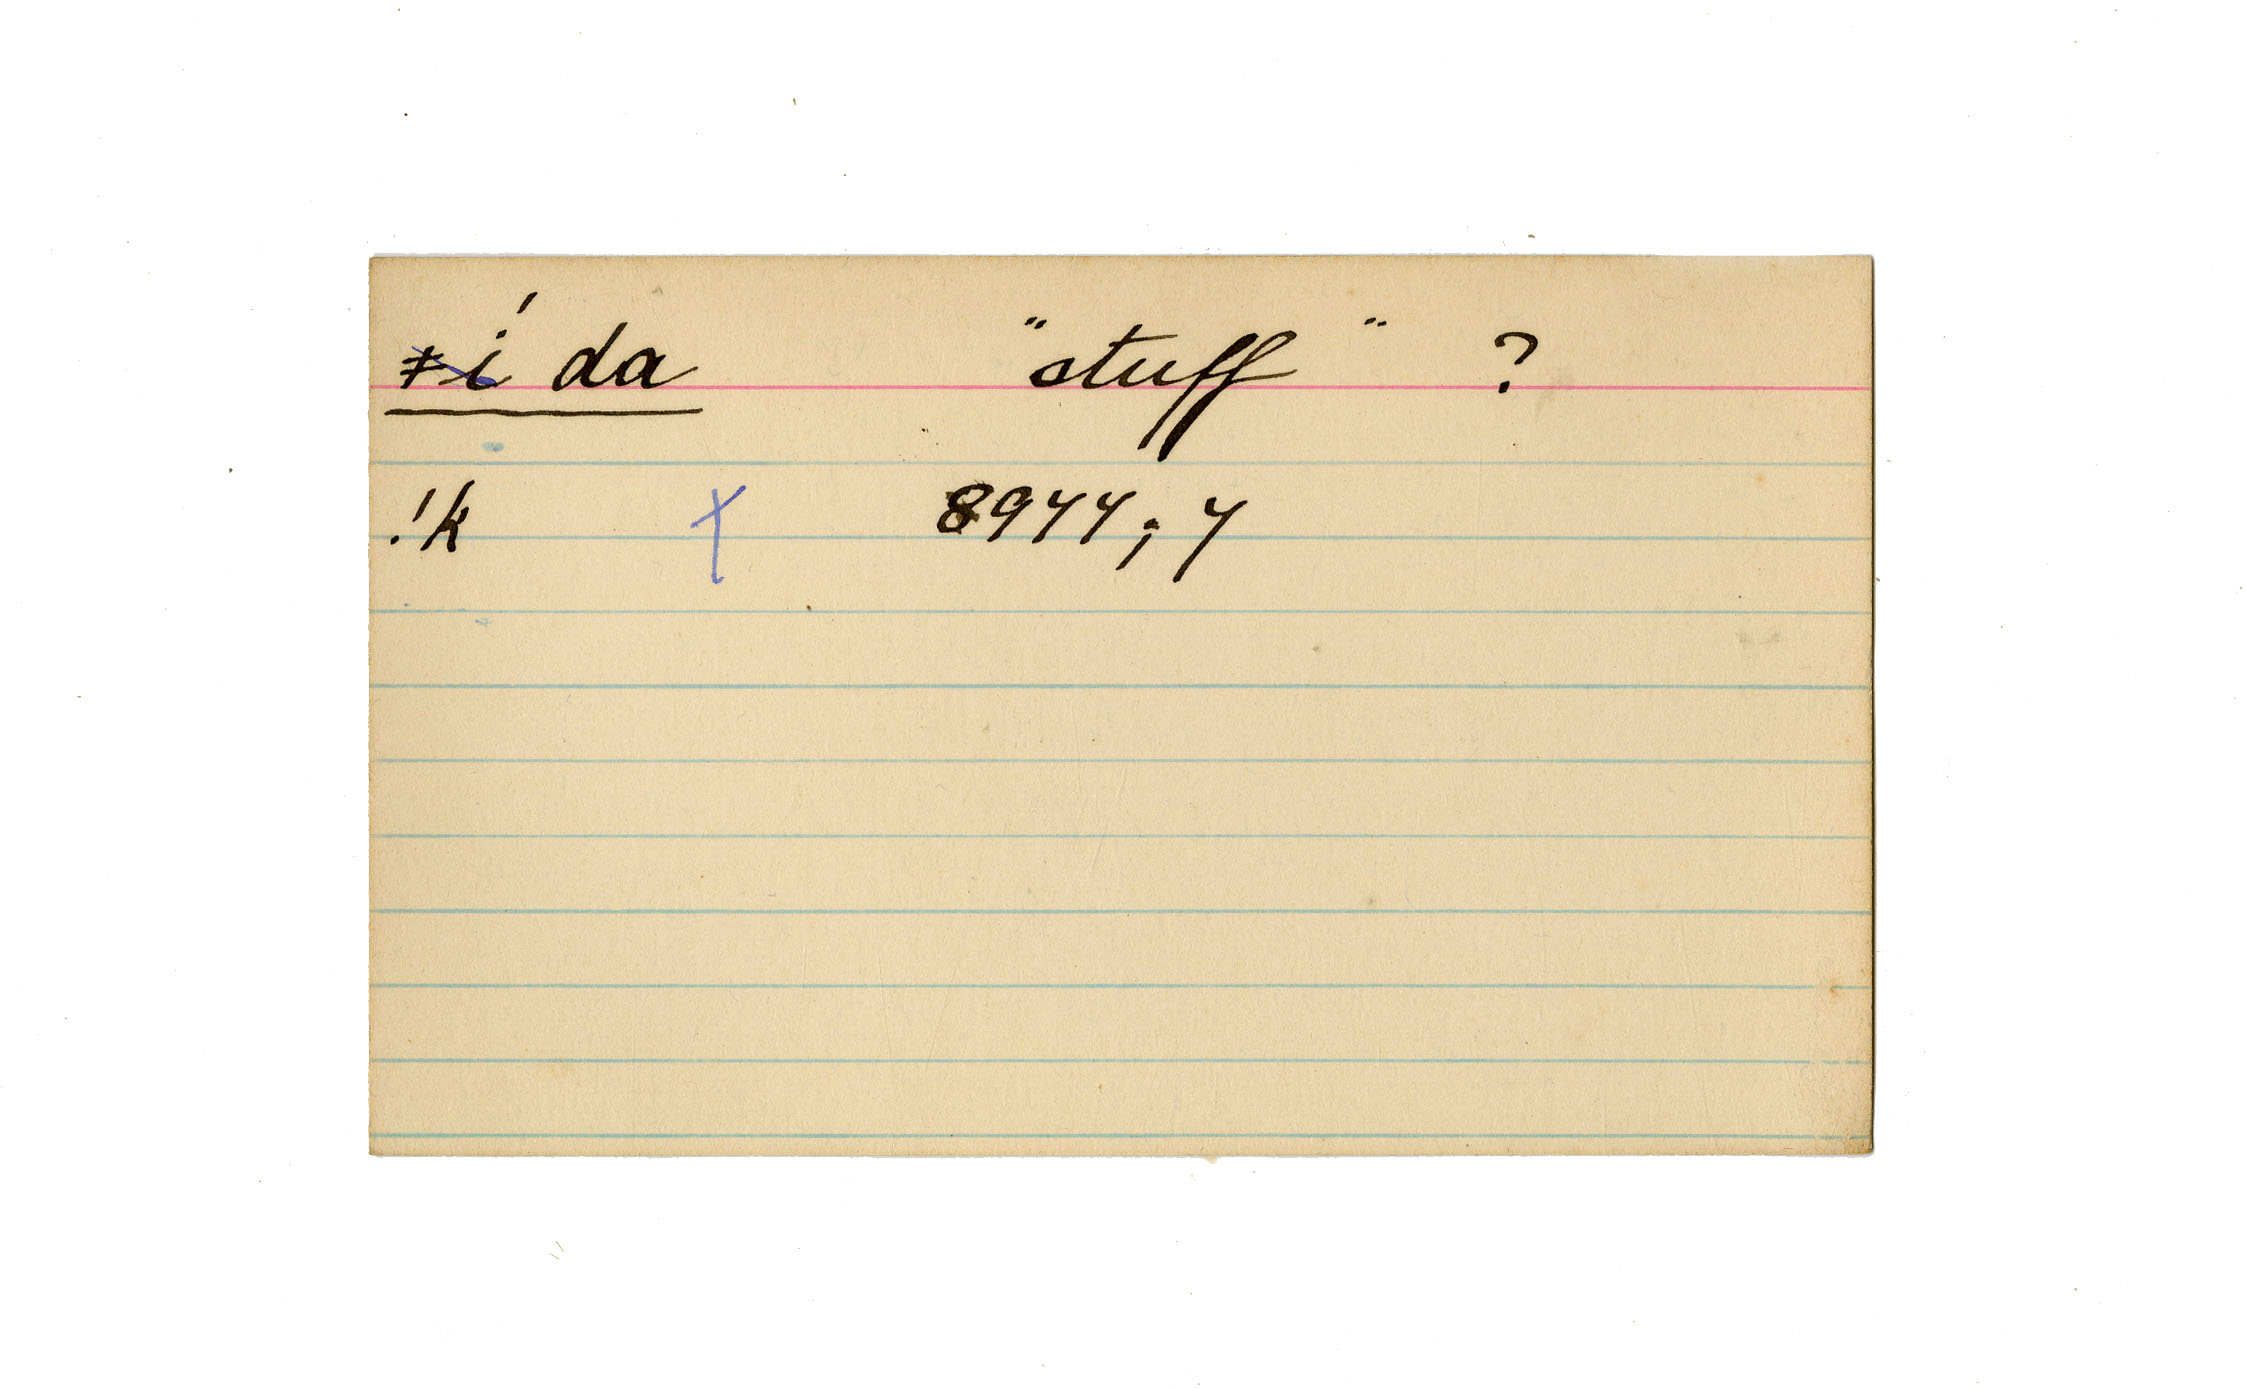 ǂí da "stuff" ?
!k X 8944; 4